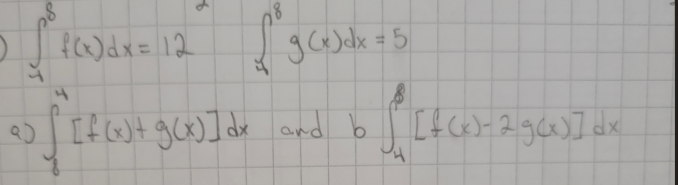 ) ∫₄⁸ f(x)dx = 12 ∫₄⁸ g(x)dx = 5
a) ∫₈⁴ [f(x)+g(x)]dx and b ∫₄⁸ [f(x)-2g(x)]dx